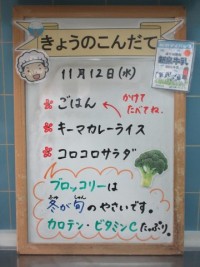 きょうのこんだて
11月12日(水)
ごはん
かけて
たべてね。
キーマカレーライス
コロコロサラダ
ブロッコリーは
冬が旬のやさいです。
カロテン・ビタミンCたっぷり。